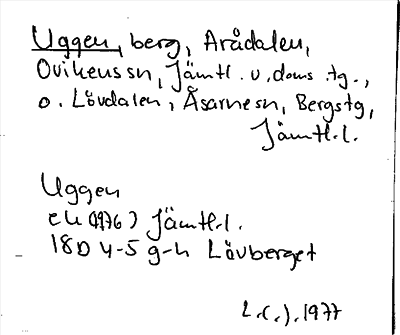 Uggen, berg, Arådalen,
Ovikens sn, Jämtl. v. doms.tg.,
o. Lövdalen, Åsarne sn, Bergs tg,
Jämtl. l.
Uggen
ek (1976) Jämtl. l.
18D 4-5 g-h Lövberget
1977